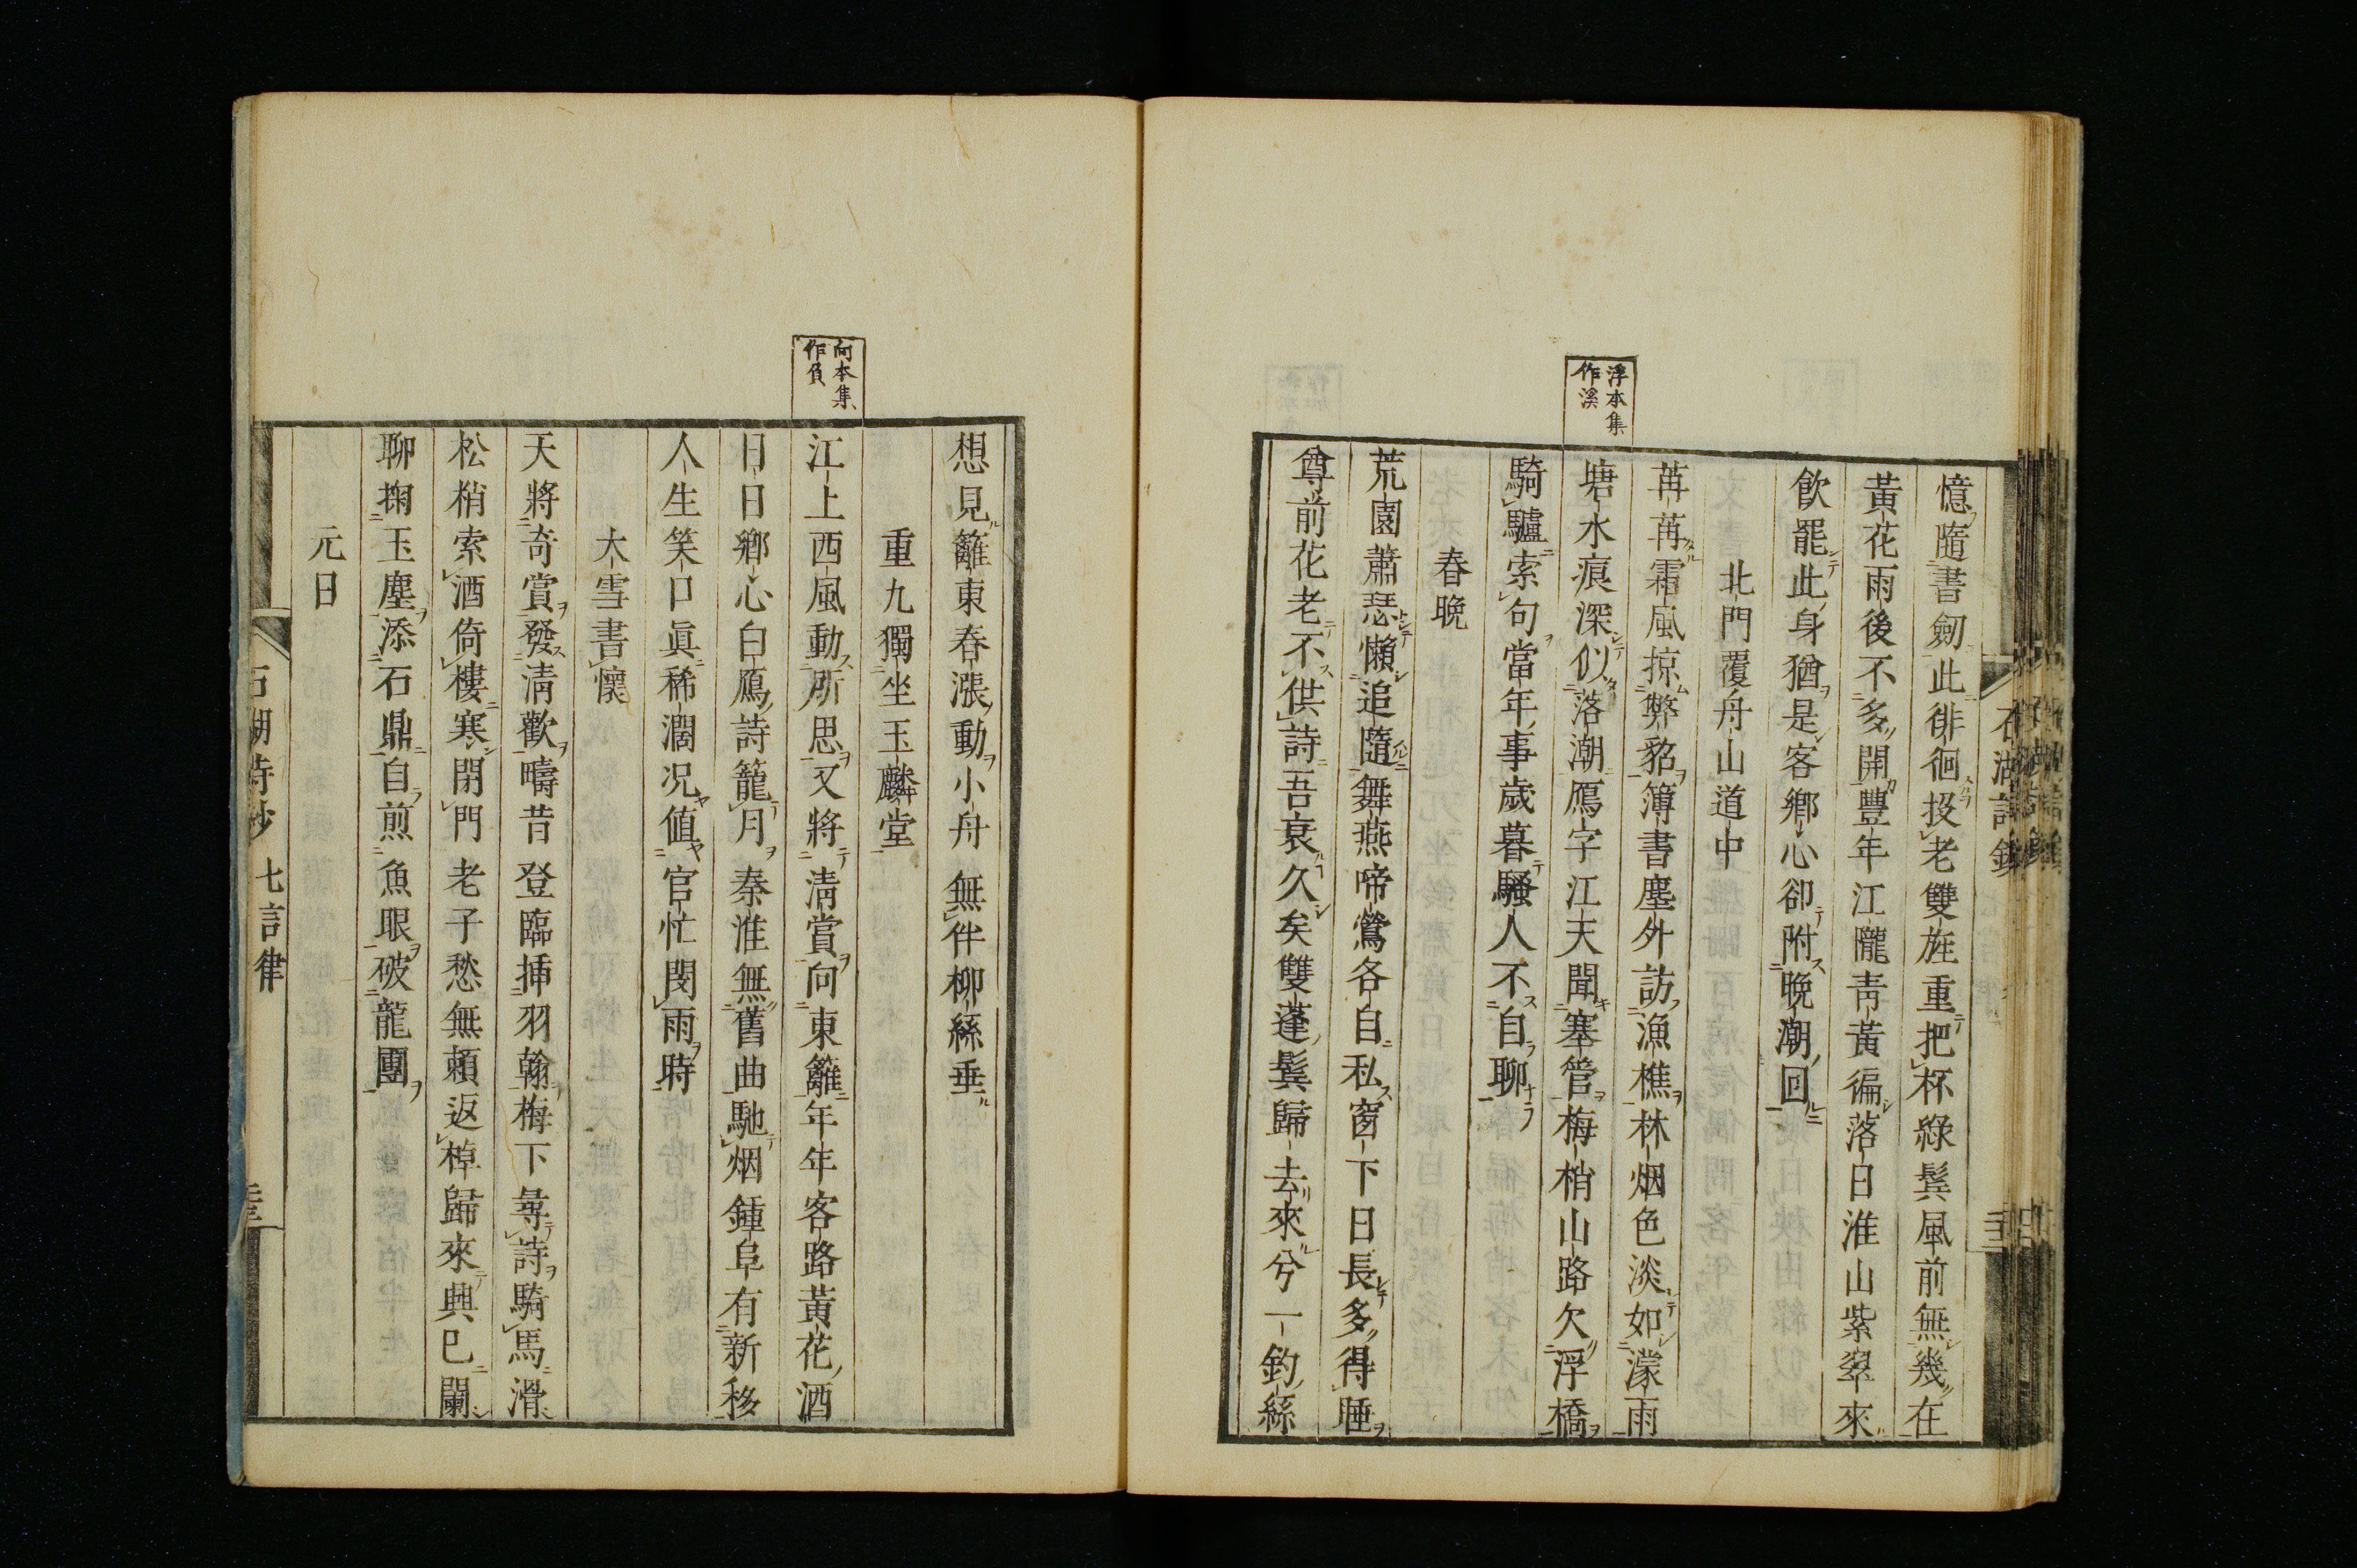 憶隨書劒此徘徊投老雙旌重把杯綠鬂風前無幾在
黃花雨後不多開豐年江隴靑黃徧落日淮山紫翠來
飮罷此身猶是客鄕心卻附晚潮回
北門覆舟山道中
苒苒霜風掠弊貂簿書塵外訪漁樵林烟色淡如濛雨
浮本集
作溪
塘水痕深似落潮鴈字江天聞塞管梅梢山路欠浮橋
騎驢索句當年事歲暮騷人不自聊
春晚
荒園蕭瑟懶追隨舞燕啼鶯各自私窗下日長多得睡
尊前花老不供詩吾衰久矣雙蓬鬂歸去來兮一釣絲
想見籬東春漲動小舟無伴柳絲垂
重九獨坐玉麟堂
向本集
作負
江上西風動所思又將淸賞向東籬年年客路黃花酒
日日鄕心白鴈詩籠月秦淮無舊曲馳烟鍾阜有新移
人生笑口眞稀濶况値官忙閔雨時
大雪書懷
天將奇賞發淸歡疇昔登臨揷羽翰梅下尋詩騎馬滑
松梢索酒倚樓寒閉門老子愁無賴返棹歸來興已闌
聊掬玉塵添石鼎自煎魚眼破龍團
元日
石湖詩抄 七言律